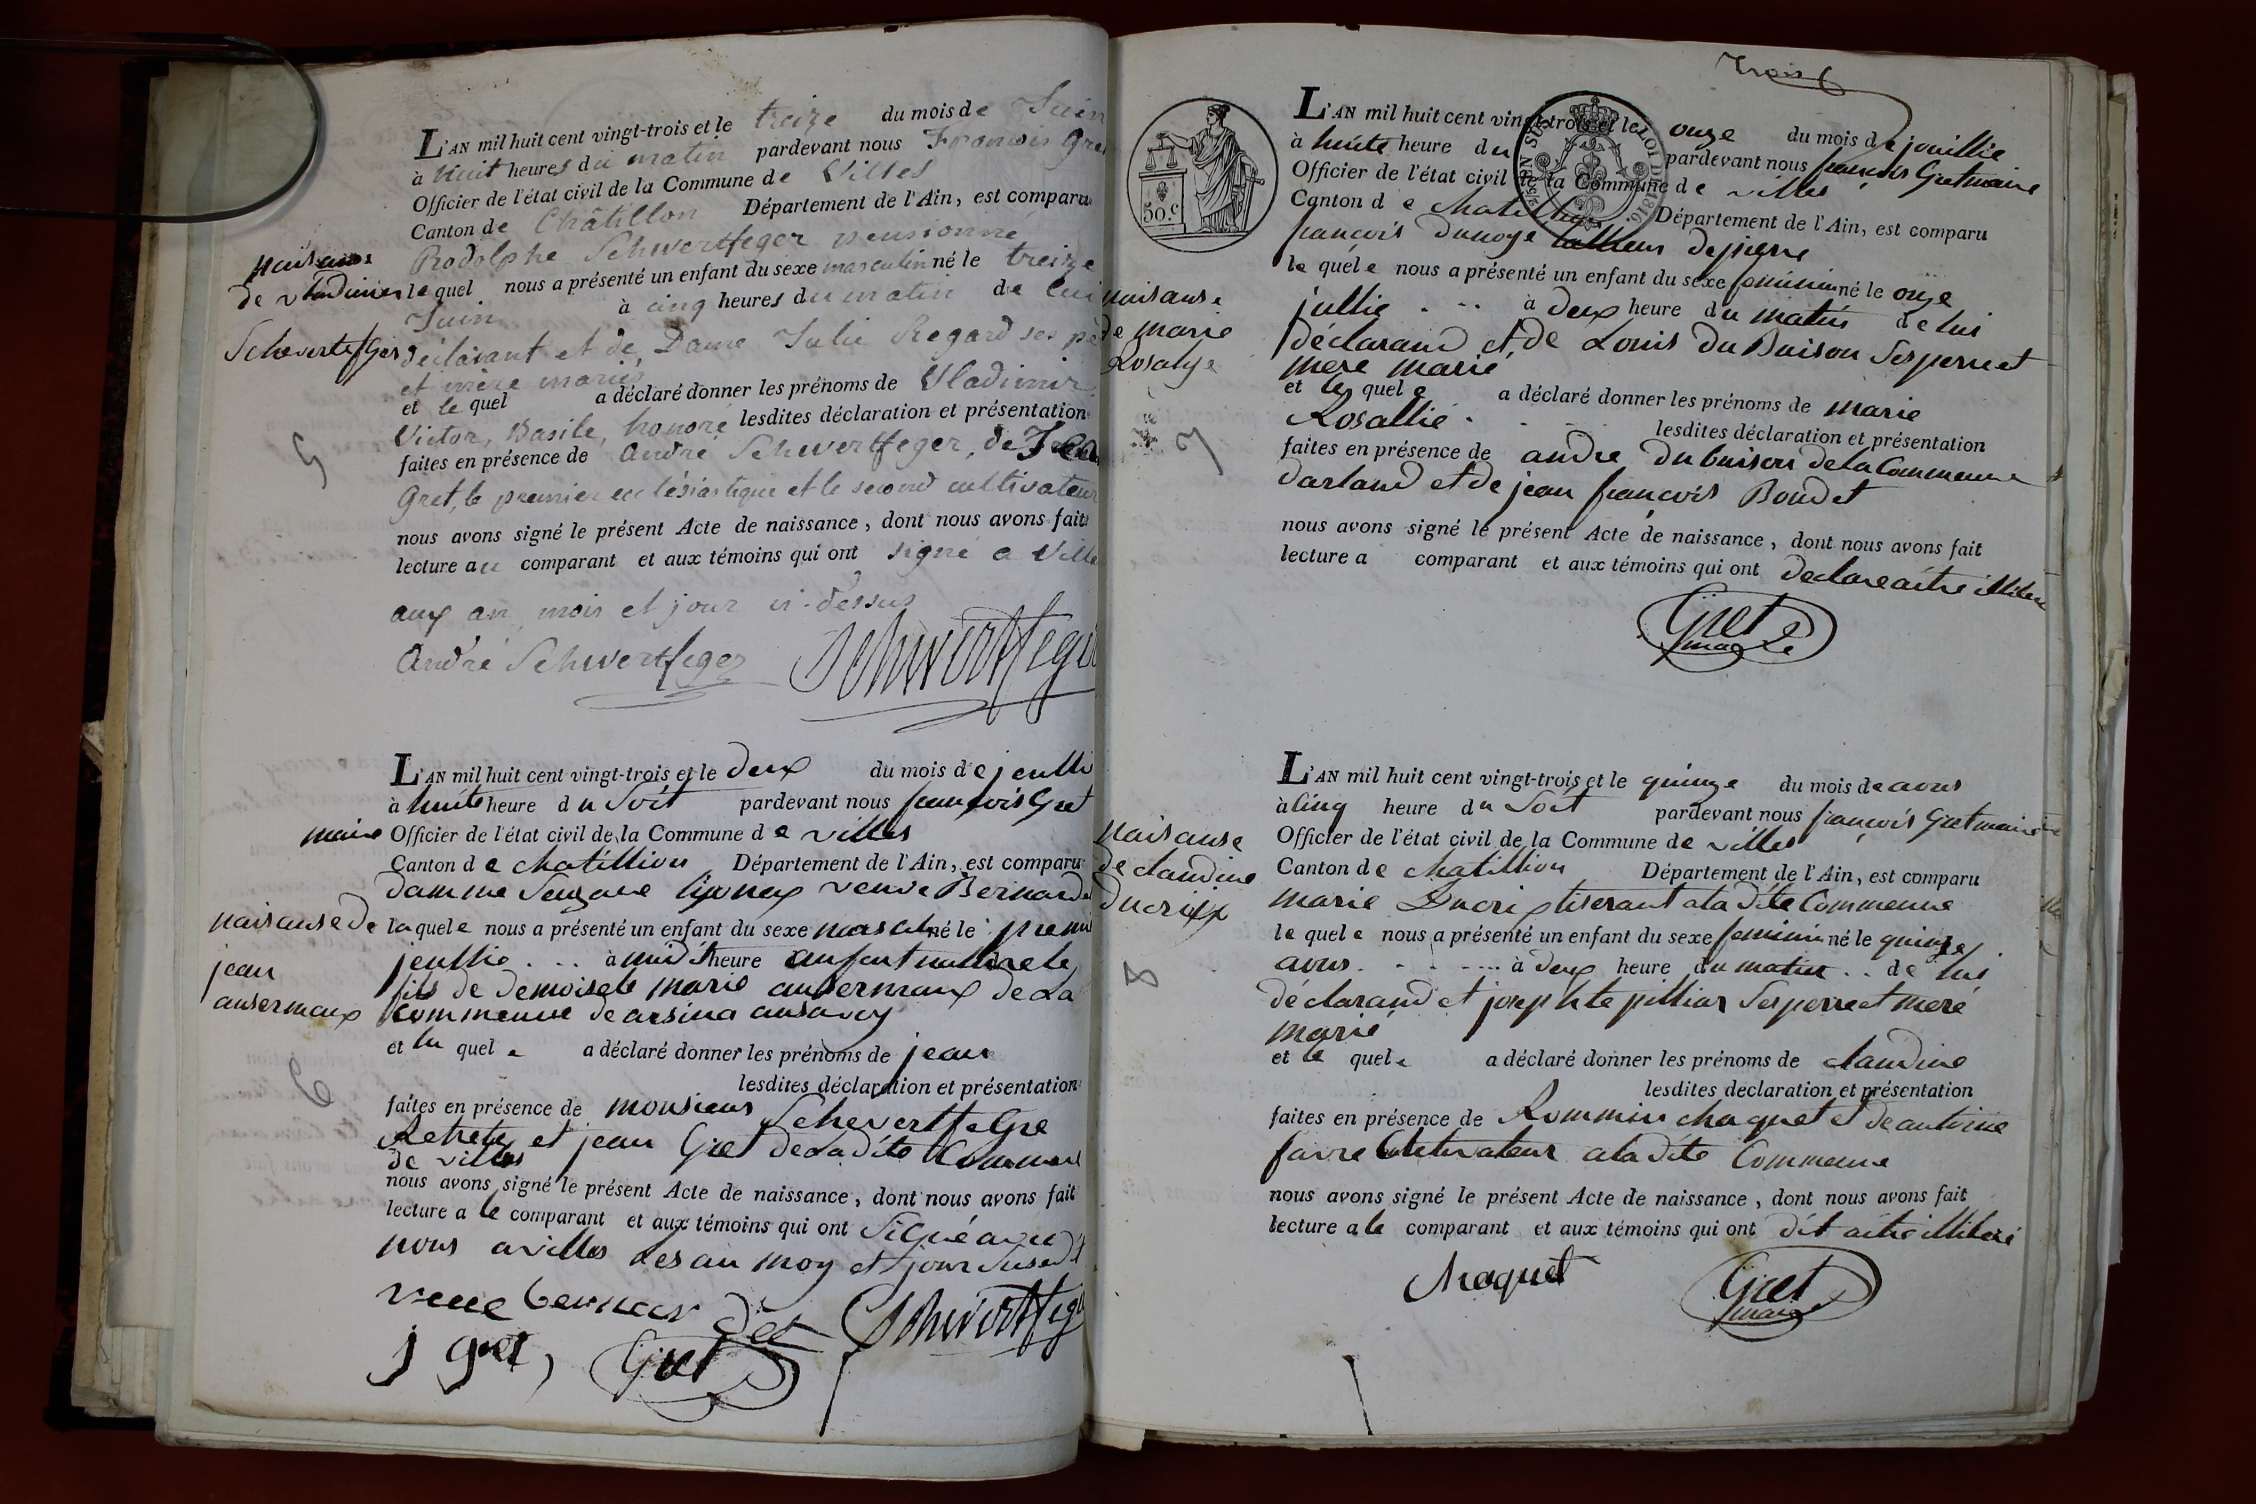 L'AN mil huit cent vingt-trois et le treize du mois de Juin
à huit heures du matin pardevant nous François Gret
Officier de l'état civil de la Commune de Villes
Canton de Châtillon Département de l'Ain, est comparu
Rodolphe Schwertfeger pensionné
naisanse
de vladimier
Schevertefger
le quel nous a présenté un enfant du sexe masculin né le treize
Juin à cinq heures du matin de lui
déclarant et de Dame Julie Regard ses pè
et mère mariés
et le quel a déclaré donner les prénoms de Vladimir
Victor, Basile, honoré lesdites déclaration et présentation
5
faites en présence de André Schwertfeger, de Jean
Gret, le premier ecclésiastique et le second cultivateur
nous avons signé le présent Acte de naissance, dont nous avons fait
lecture au comparant et aux témoins qui ont signé a Ville
aux an, mois et jour ci-dessus
André Schwertfeger Schwertfeger
L'AN mil huit cent vingt-trois et le deux du mois de jeullie
à huite heure du Soit pardevant nous françois Gret
maire Officier de l'état civil de la Commune de villes
Canton de chatillion Département de l'Ain, est comparu
damme veuve Bernard
naisanse de
jean
ansermaux
la quele nous a présenté un enfant du sexe mascul né le premie
jeullie . . . à midit heure anfent naturele
fils de demoisele marie ansermaux de La
Commeune de arsina ansavoy
et la quele a déclaré donner les prénoms de jean
lesdites déclaration et présentation
6
faites en présence de monsieur Schevertfegre
Retrete et jean Gret de La dite Commeune
de villes
nous avons signé le présent Acte de naissance, dont nous avons fait
lecture a le comparant et aux témoins qui ont Signé avec
nous a villes Les an moy et jour susedi
veuve bernar Schwertfeger
j gret, Gret
Trois
50.c
L'AN mil huit cent vingt-trois et le onze du mois de jouillie
à huite heure du pardevant nous françois Gret maire
Officier de l'état civil de la Commune de villes
Canton de chatillion Département de l'Ain, est comparu
françois dunoye tallieur de pierre
le quele nous a présenté un enfant du sexe feminin né le onze
naisanse
de marie
Rosalye
jullie . . . à deux heure du matin de lui
déclarand et de Louis du Buison Ses perre et
mere marié
et le quele a déclaré donner les prénoms de marie
Rosallie . . . lesdites déclaration et présentation
7
faites en présence de andre du buison de la Commeune
darland et de jean françois Boudet
nous avons signé le présent Acte de naissance, dont nous avons fait
lecture a comparant et aux témoins qui ont declare aitre illiteré
Gret
maire
L'AN mil huit cent vingt-trois et le quinze du mois de avous
à Cinq heure du Soit pardevant nous françois Gret maire
Officier de l'état civil de la Commune de villes
Canton de chatillion Département de l'Ain, est comparu
naisanse
de claudine
Ducrix
marie Ducrix tiserant a la dite Commeune
le quele nous a présenté un enfant du sexe feminin né le quinze
avous . . . à deux heure du matin . . de lui
déclarand et josephte pilliar Ses perre et mere
marié
et le quele a déclaré donner les prénoms de claudine
lesdites déclaration et présentation
8
faites en présence de Rommin chaquet et de antoine
favre Cultivateur a la dite Commeune
nous avons signé le présent Acte de naissance, dont nous avons fait
lecture a le comparant et aux témoins qui ont dit aitre illiteré
Chaquet Gret
maire